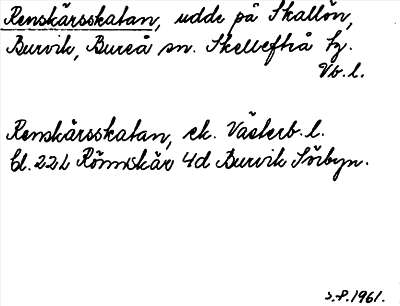 Renskärsskatan, udde på Skallön,
Burvik, Bureå sn. Skellefteå tg.
Vb.l.
Renskärsskatan, ek. Västerb. l.
bl. 22L Rönnskär 4d Burvik Sörbyn.
S.P. 1961.